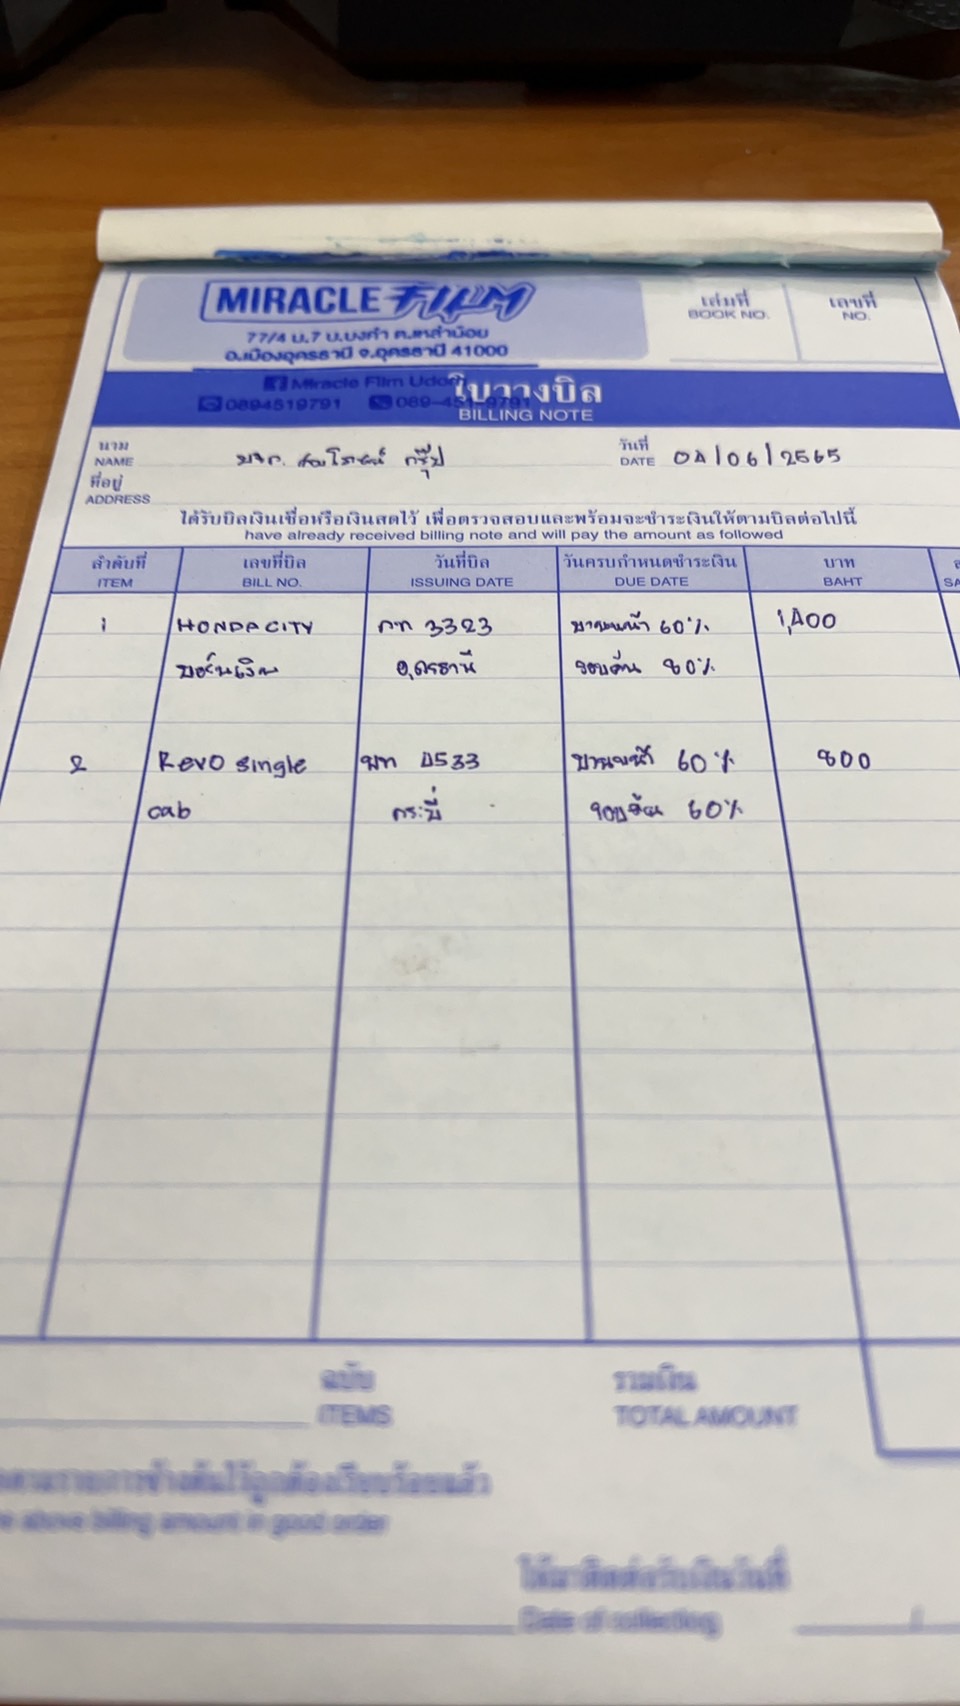 MIRACLE FILM
77/4 ม.7 บ.บงคำ ต.เหล่าน้อย
อ.เมืองอุดรธานี จ.อุดรธานี 41000
Miracle Film Udorn
0894519791 089-451-9791
เล่มที่
BOOK NO.
เลขที่
NO.
ใบวางบิล
BILLING NOTE
นาม
NAME
กรุ๊ป
วันที่
DATE 04/06/2565
ที่อยู่
ADDRESS
ได้รับบิลเงินเชื่อหรือเงินสดไว้ เพื่อตรวจสอบและพร้อมจะชำระเงินให้ตามบิลต่อไปนี้
have already received billing note and will pay the amount as followed
ลำดับที่ เลขที่บิล วันที่บิล วันครบกำหนดชำระเงิน บาท
ITEM BILL NO. ISSUING DATE DUE DATE BAHT
1 HONDA CITY กท 3323 บานหน้า 60% 1,400
บอร์นเงิน อุดรธานี รอบคัน 80%
2 Revo single 4533 บานหน้า 60% 800
cab กระบี่ รอบคัน 60%
ฉบับ
ITEMS
รวมเงิน
TOTAL AMOUNT
ตามรายการข้างต้นไว้ถูกต้องเรียบร้อยแล้ว
above billing amount in good order
ให้มาติดต่อรับเงินวันที่
Date of collecting